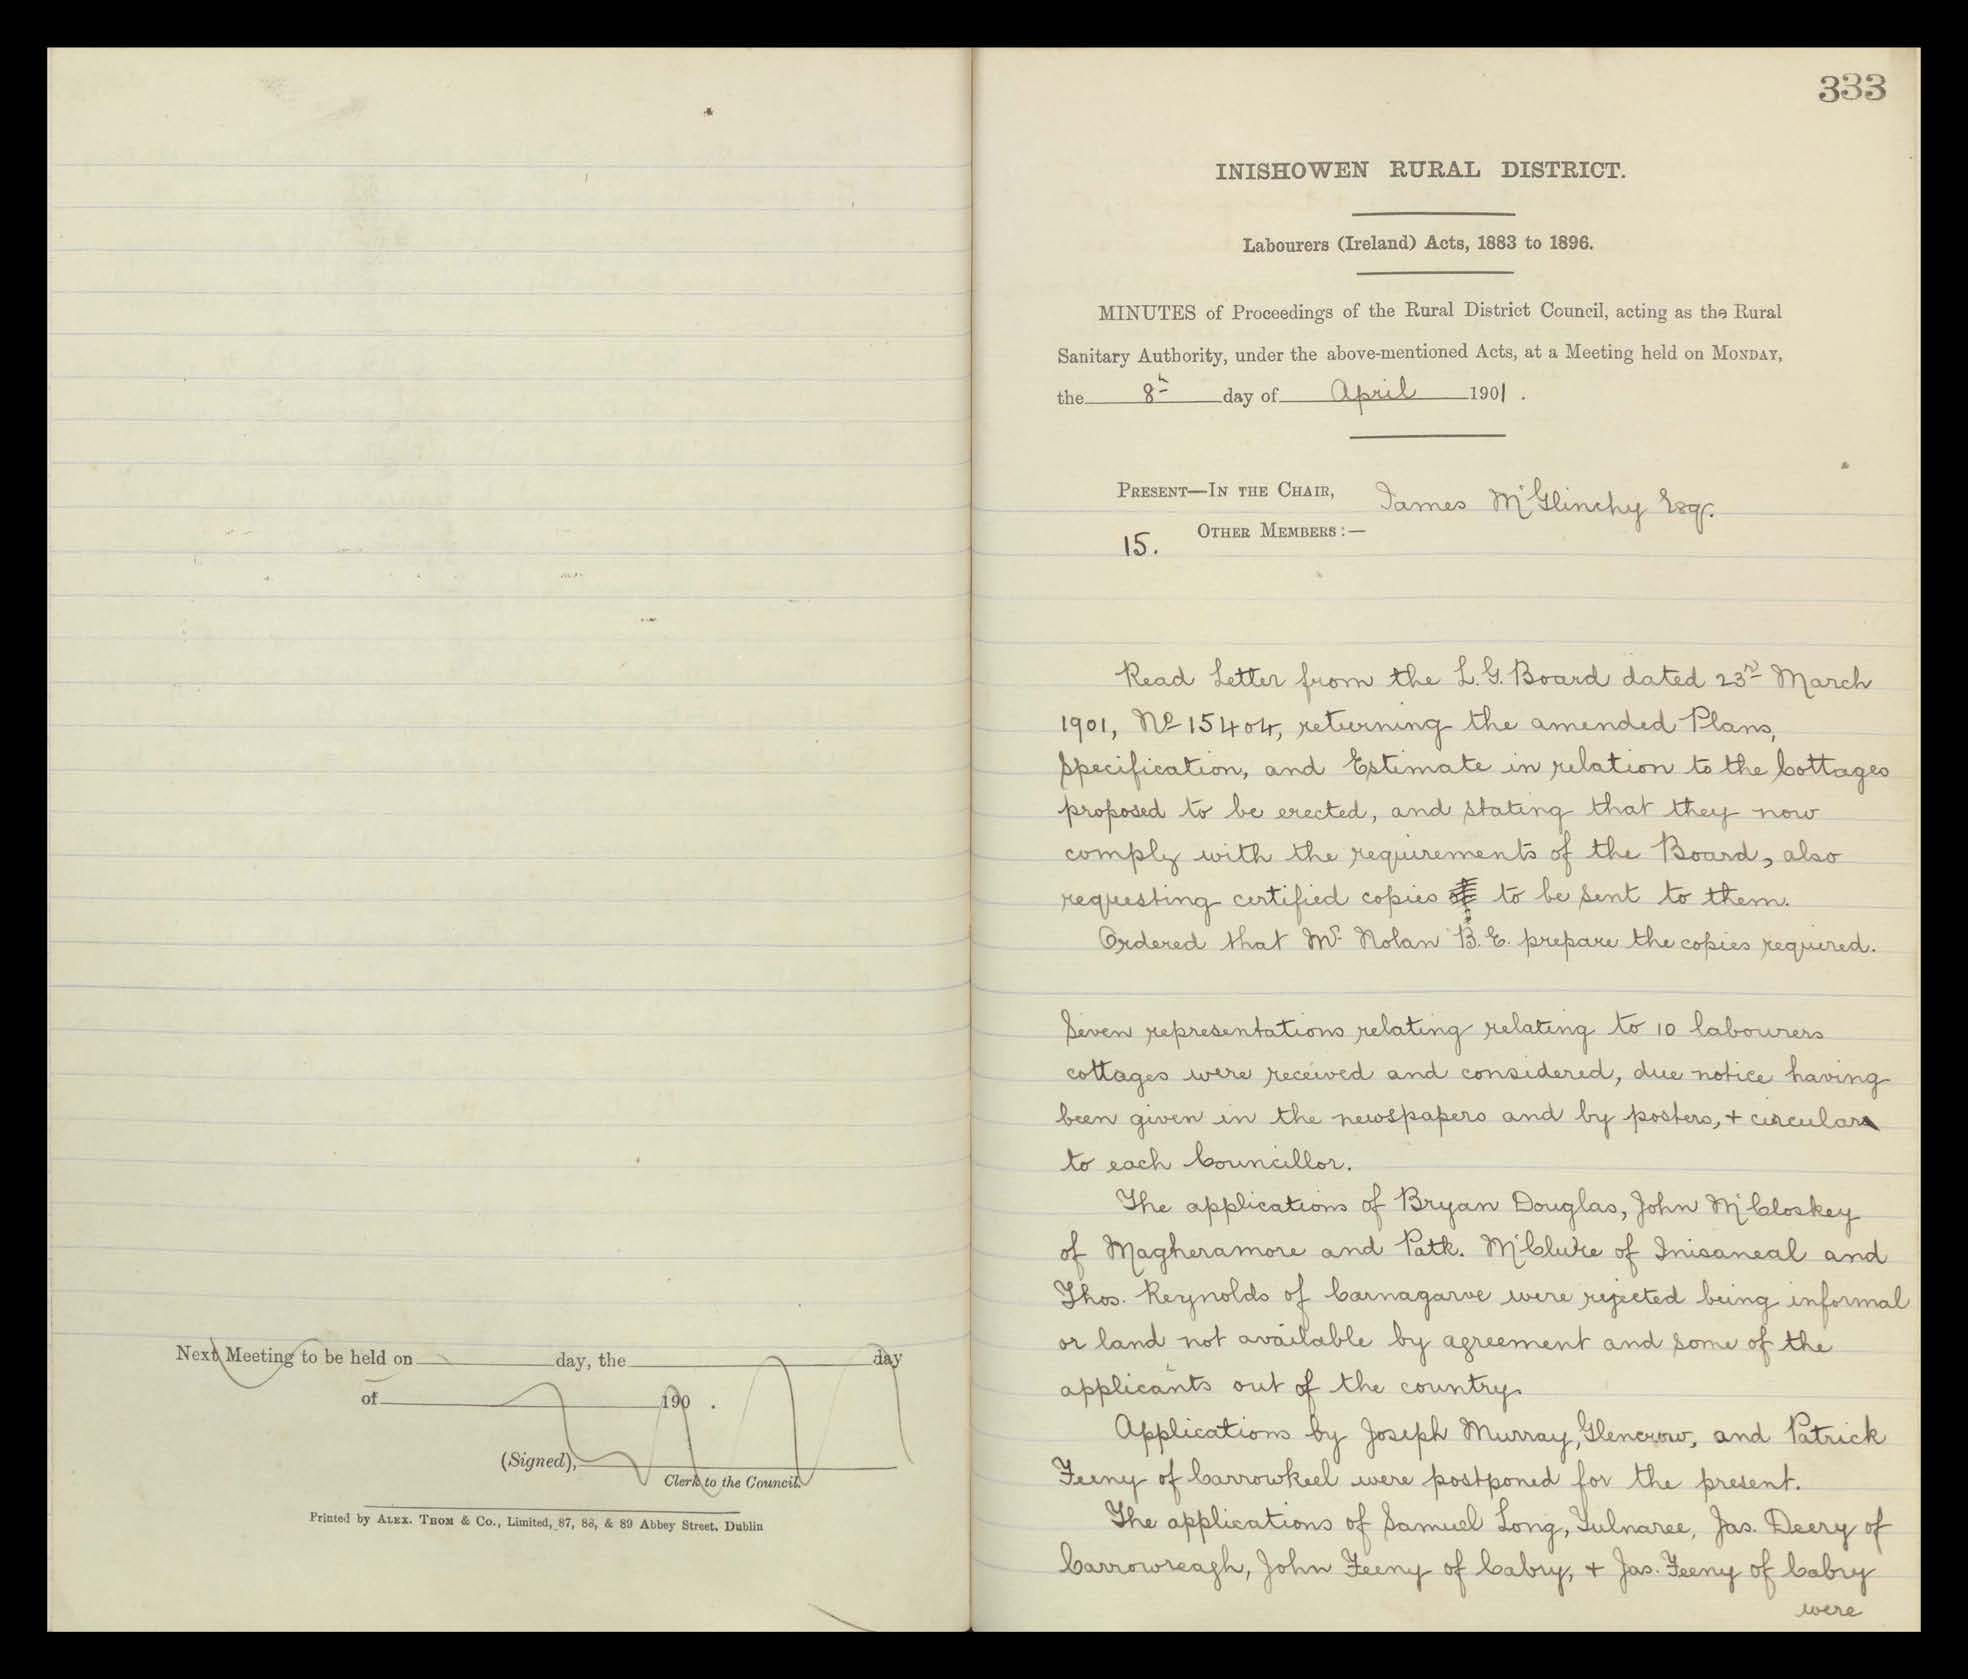 Next Meeting to be held on day, the day
of 190 .
(Signed),
Clerk to the Council.
Printed by ALEX. THOM & Co., Limited, 87, 88, & 89 Abbey Street, Dublin
333
INISHOWEN RURAL DISTRICT.
Labourers (Ireland) Acts, 1883 to 1896.
MINUTES of Proceedings of the Rural District Council, acting as the Rural
Sanitary Authority, under the above-mentioned Acts, at a Meeting held on MONDAY,
the 8th day of April 1901 .
PRESENT—IN THE CHAIR, James McGlinchy Esqr.
OTHER MEMBERS :—
15.
Read Letter from the L.G. Board dated 23rd March
1901, No 15404, returning the amended Plans,
Specification, and Estimate in relation to the Cottages
proposed to be erected, and stating that they now
comply with the requirements of the Board, also
requesting certified copies of to be sent to them.
Ordered that Mr Nolan B.E. prepare the copies required.
Seven representations relating relating to 10 labourers
cottages were received and considered, due notice having
been given in the newspapers and by posters, + circulars
to each Councillor.
The applications of Bryan Douglas, John McCloskey
of Magheramore and Patk. McClure of Inisaneal and
Thos. Reynolds of Carnagarve were rejected being informal
or land not available by agreement and some of the
applicants out of the country.
Applications by Joseph Murray, Glencrow, and Patrick
Feeny of Carrowkeel were postponed for the present.
The applications of Samuel Long, Tulnaree, Jas. Deery of
Carrowreagh, John Feeny of Cabry, + Jas. Feeny of Cabry
were